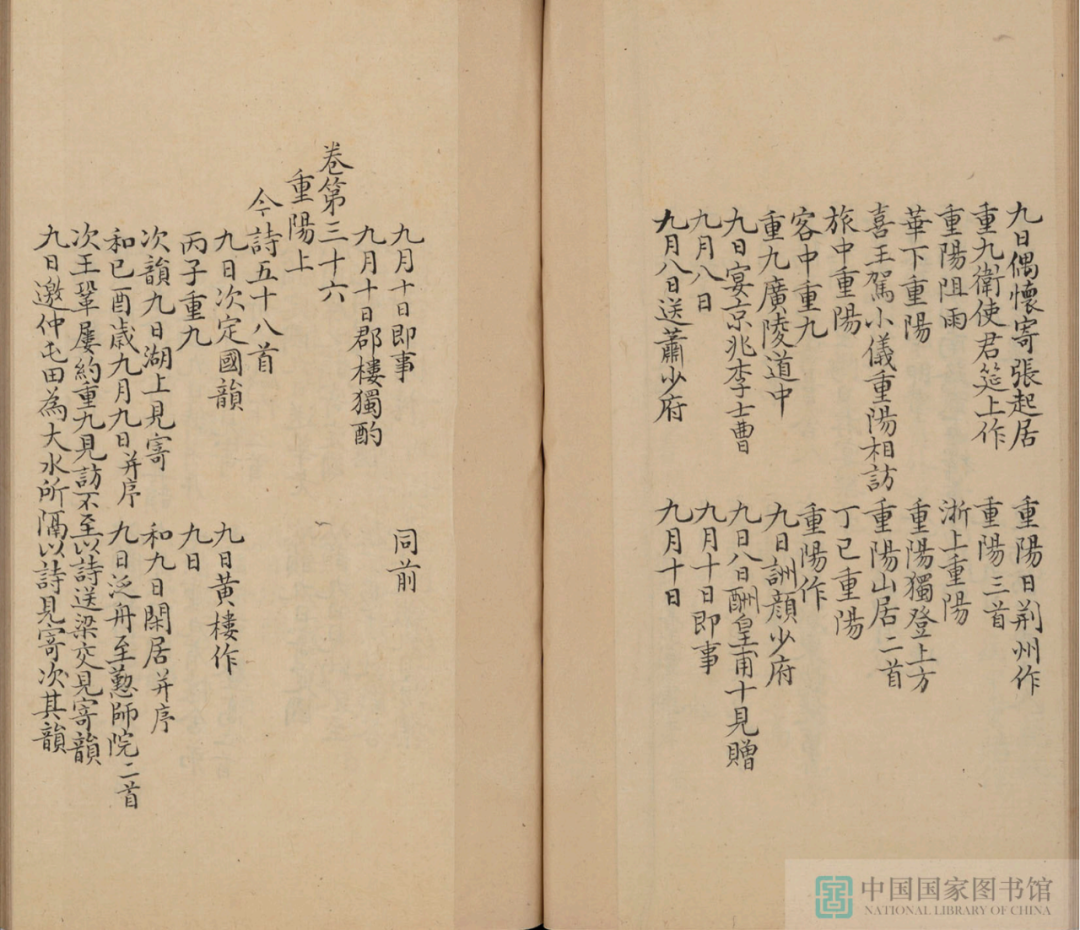 九日偶懷寄張起居 重陽日荆州作
重九衛使君筵上作 重陽三首
重陽阻雨 浙上重陽
華下重陽 重陽獨登上方
喜王駕小儀重陽相訪 重陽山居二首
旅中重陽 丁巳重陽
客中重九 重陽作
重九廣陵道中 九日詶顏少府
九日宴京兆李士曹 九日八日酬皇甫十見贈
九月八日 九月十日即事
九月八日送蕭少府 九月十日
九月十日即事 同前
九月十日郡樓獨酌
卷第三十六
重陽上
今詩五十八首
九日次定國韻 九日黃樓作
丙子重九 九日
次韻九日湖上見寄 和九日閑居并序
和已酉歲九月九日并序 九日泛舟至懃師院二首
次王鞏屢約重九見訪不至以詩送梁交見寄韻
九日邀仲屯田為大水所隔以詩見寄次其韻
中国国家图书馆
NATIONAL LIBRARY OF CHINA